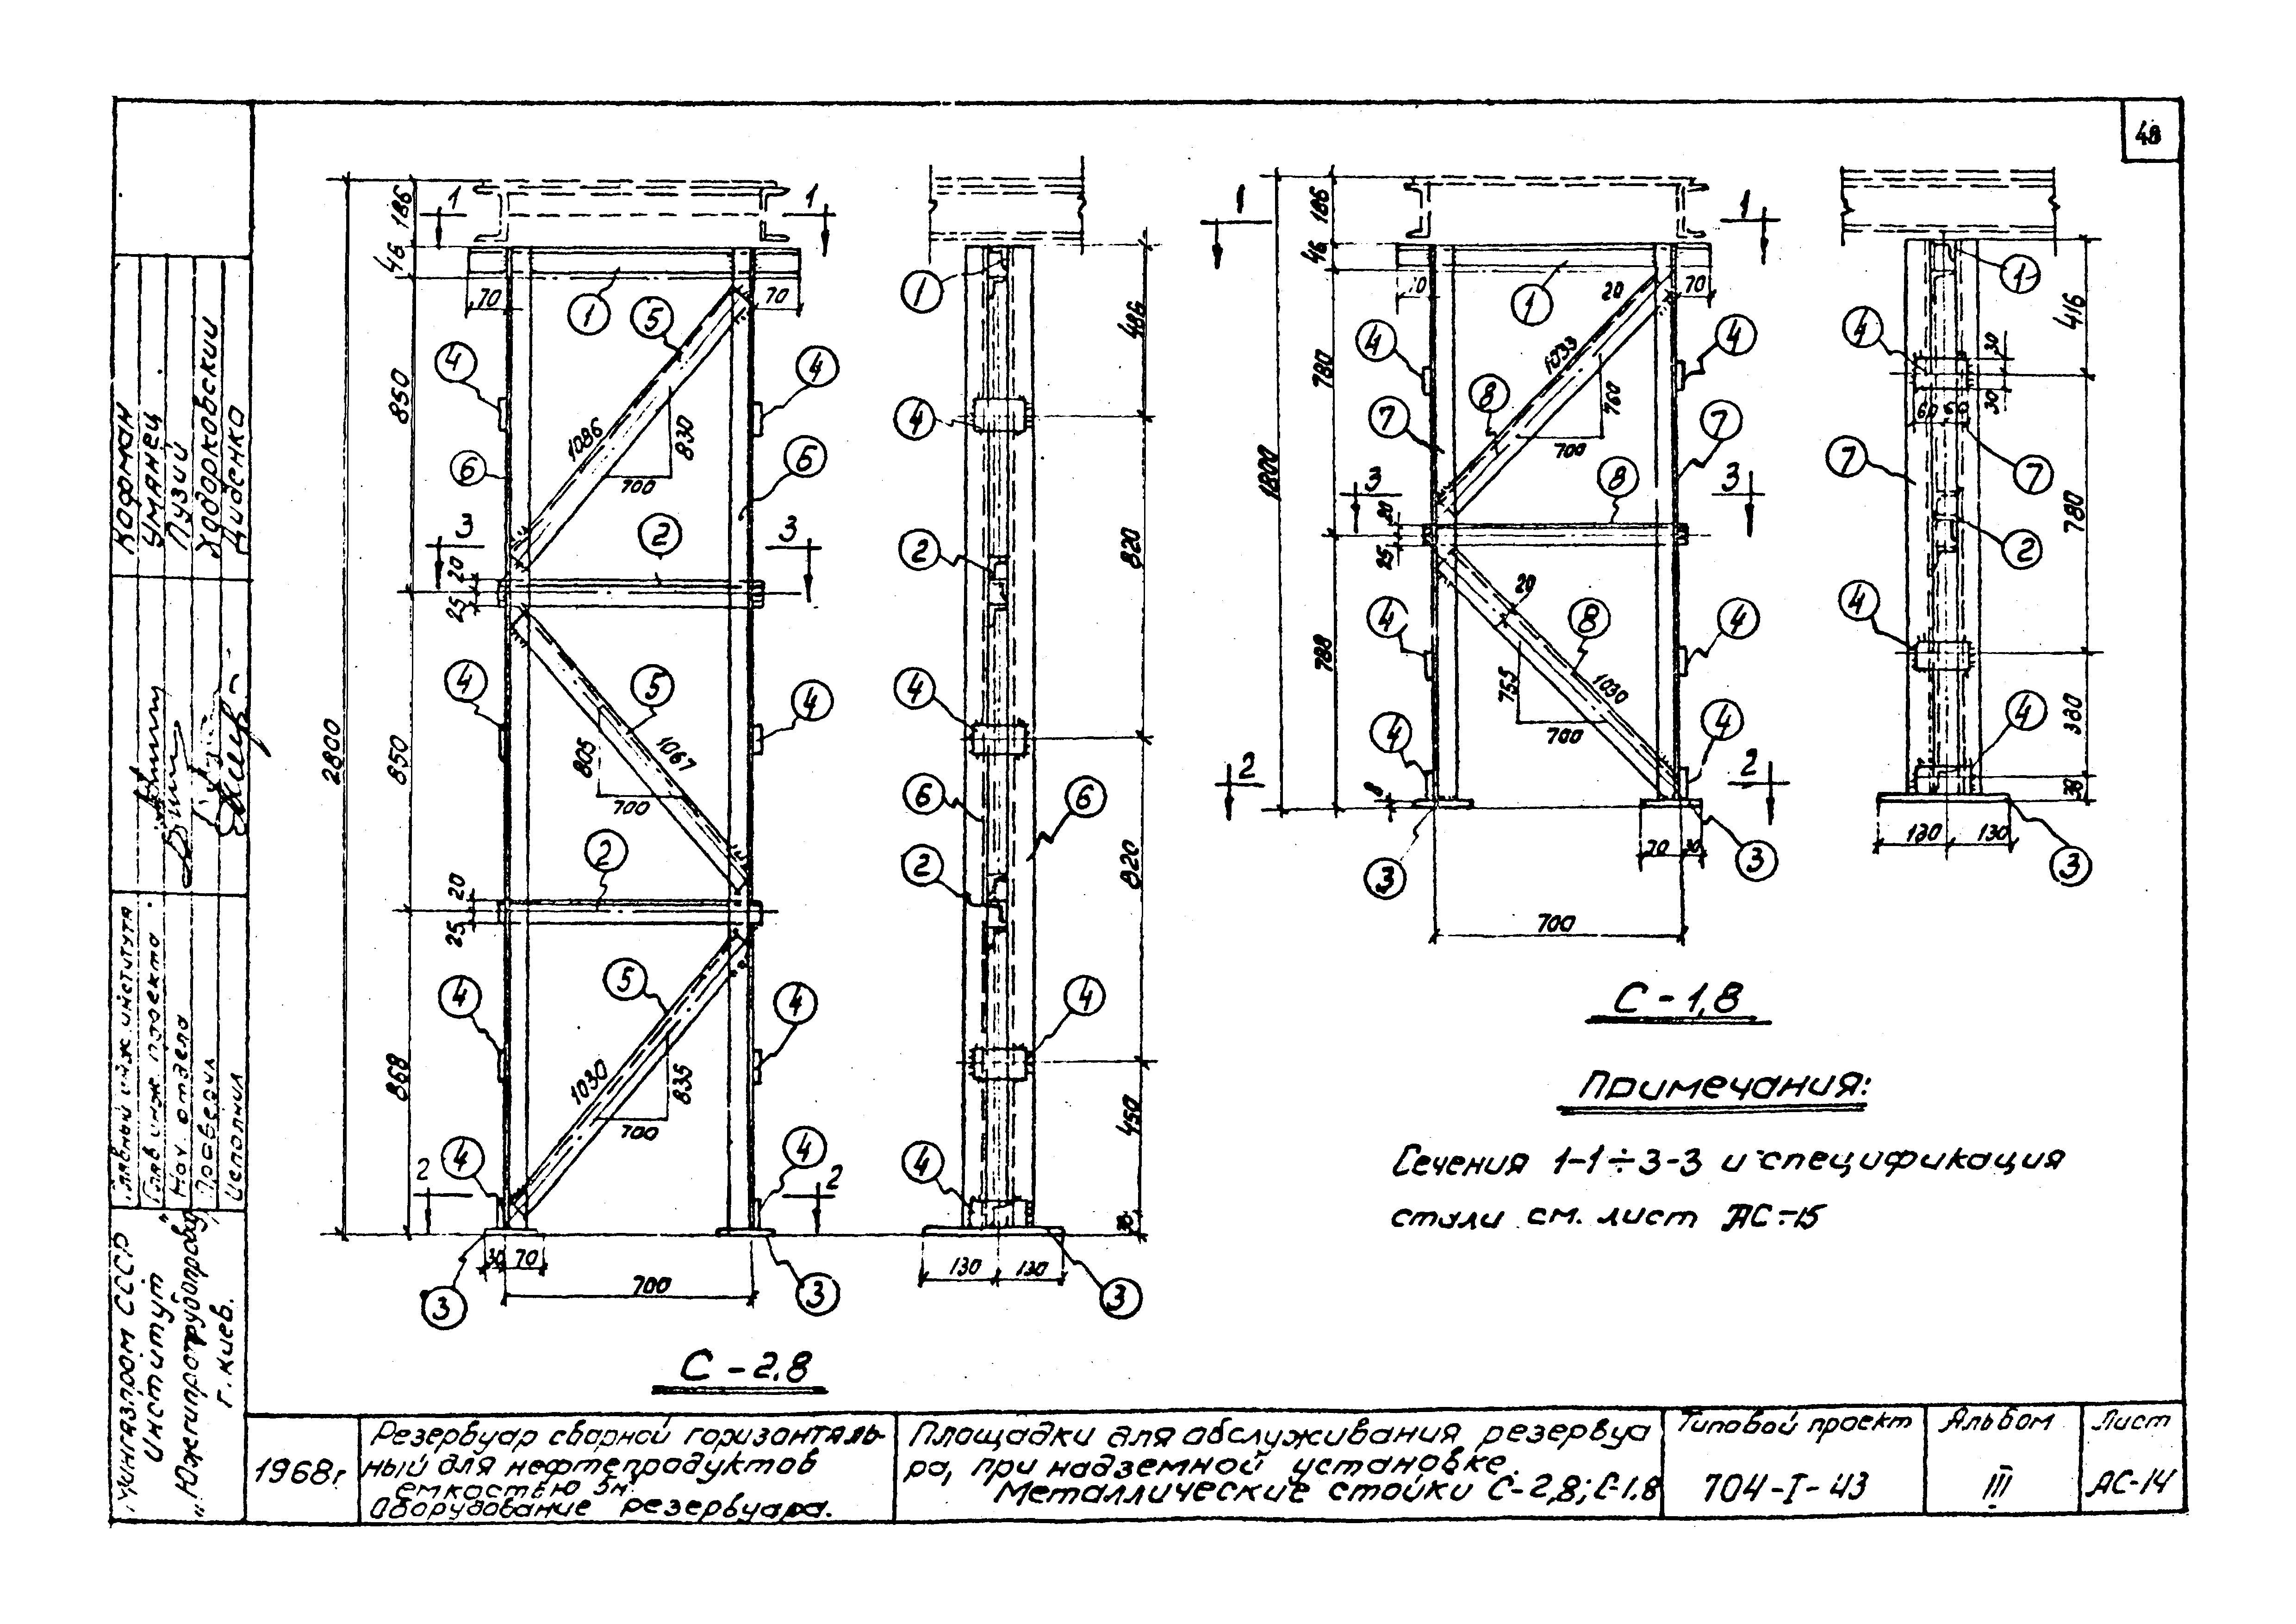 48
2800
186
46
850
850
868
1
1
70
70
1
5
4
4
1086
830
700
6
6
3
3
2
20
25
4
5
4
805
1067
700
2
20
25
4
5
4
1030
835
700
4
4
2
2
30
70
700
3
3
С-2,8
1
486
4
2
820
4
6
6
2
820
4
450
4
130
130
3
1800
186
46
780
788
1
1
70
20
1
4
4
1033
8
760
700
7
7
3
3
8
20
25
20
4
8
4
755
1030
700
4
4
2
2
8
70
30
3
3
700
С-1,8
1
416
4
30
30
60
60
7
7
2
780
4
4
380
38
130
130
3
Примечания:
Сечения 1-1÷3-3 и спецификация
стали см. лист АС-15
Кофман
Уманец
Пузий
Ходорковский
Диденко
Главный инж. института
Глав. инж. проекта
Нач. отдела
Проверил
Исполнил
Мингазпром СССР
Институт
„Южгипротрубопровод"
г. Киев.
1968г.
Резервуар сварной горизонталь-
ный для нефтепродуктов
емкостью 5м³
Оборудование резервуара.
Площадки для обслуживания резервуа
ра, при надземной установке.
Металлические стойки С-2,8; С-1.8
Типовой проект
704-I-43
Альбом
III
Лист
АС-14